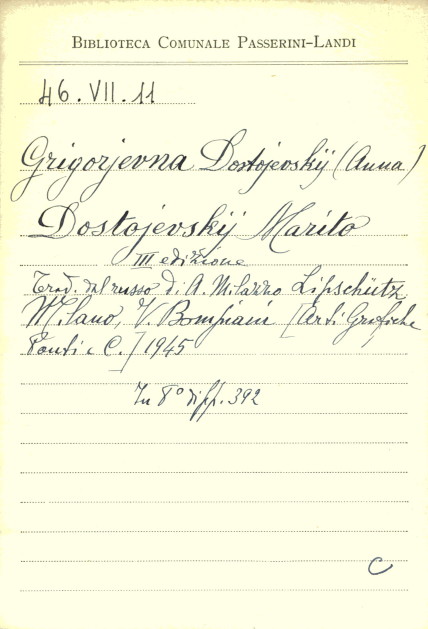 BIBLIOTECA COMUNALE PASSERINI-LANDI
46.VII.11
Grigorjevna Dostojevskij (Anna)
Dostojevskij Marito
III edizione
Trad. dal russo di A. Milazzo Lipschütz
Milano, V. Bompiani [Arti Grafiche
Ponti e C.] 1945
In 8° di pp. 392
C